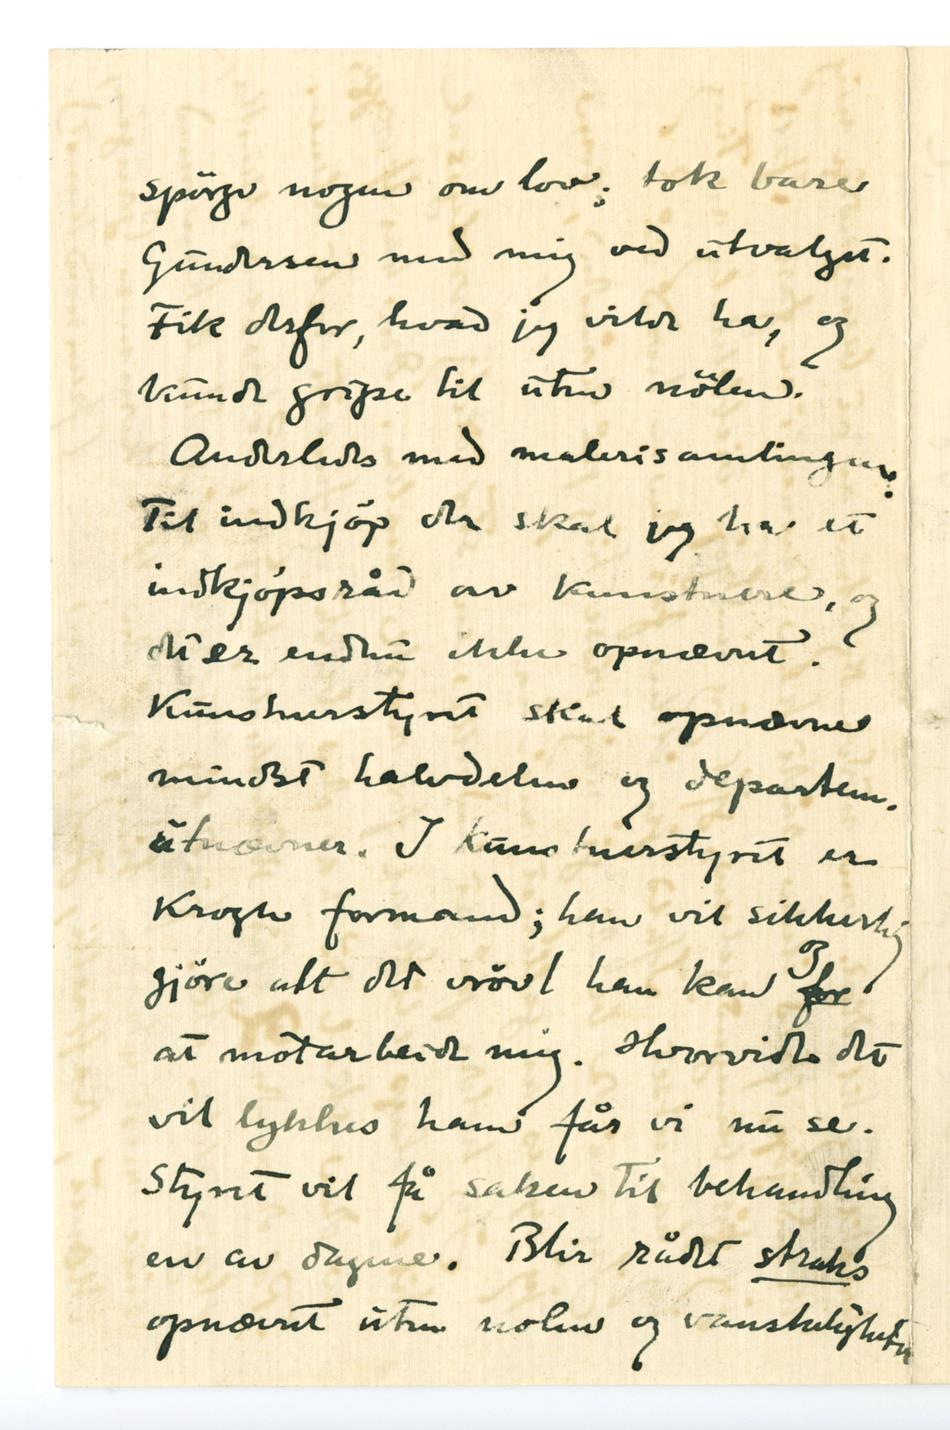 spörge nogen om lov; tok bare
Gundersen med mig ved utvalget.
Fik derfor, hvad jeg vilde ha, og
kunde gripe til uten nölen.
Anderledes med malerisamlingen:
Til indkjöp der skal jeg ha et
indkjöpsråd av kunstnere, og
det er endnu ikke opnævnt.
Kunstnerstyret skal opnævne
mindst halvdelen og departem.
utnævner. I kunstnerstyret er
Krogh formand; han vil sikkerlig
gjöre alt det vrövl han kan og for
at motarbeide mig. Hvorvidt det
vil lykkes ham får vi nu se.
Styret vil få saken til behandling
en av dagene. Blir rådet straks
opnævnt uten nolen og vanskeligheter